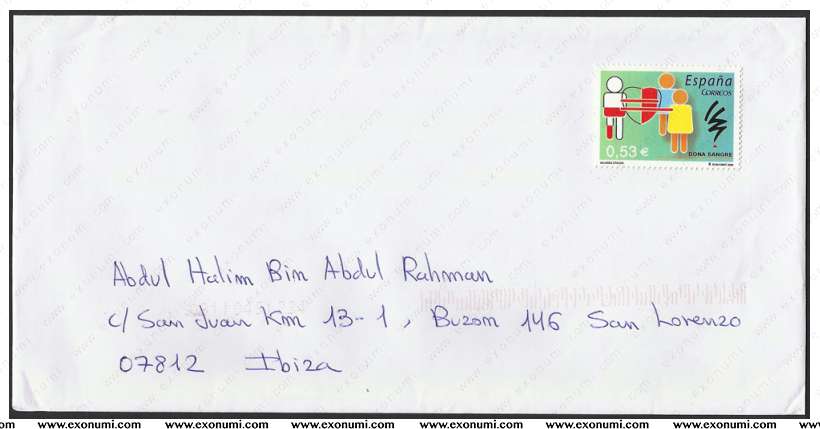 España
CORREOS
0,53 €
DONA SANGRE
Abdul Halim Bin Abdul Rahman
c/ San Juan Km 13-1, Buzom 146 San Lorenzo
07812 Ibiza
www.exonumi.com www.exonumi.com www.exonumi.com www.exonumi.com www.exonumi.com